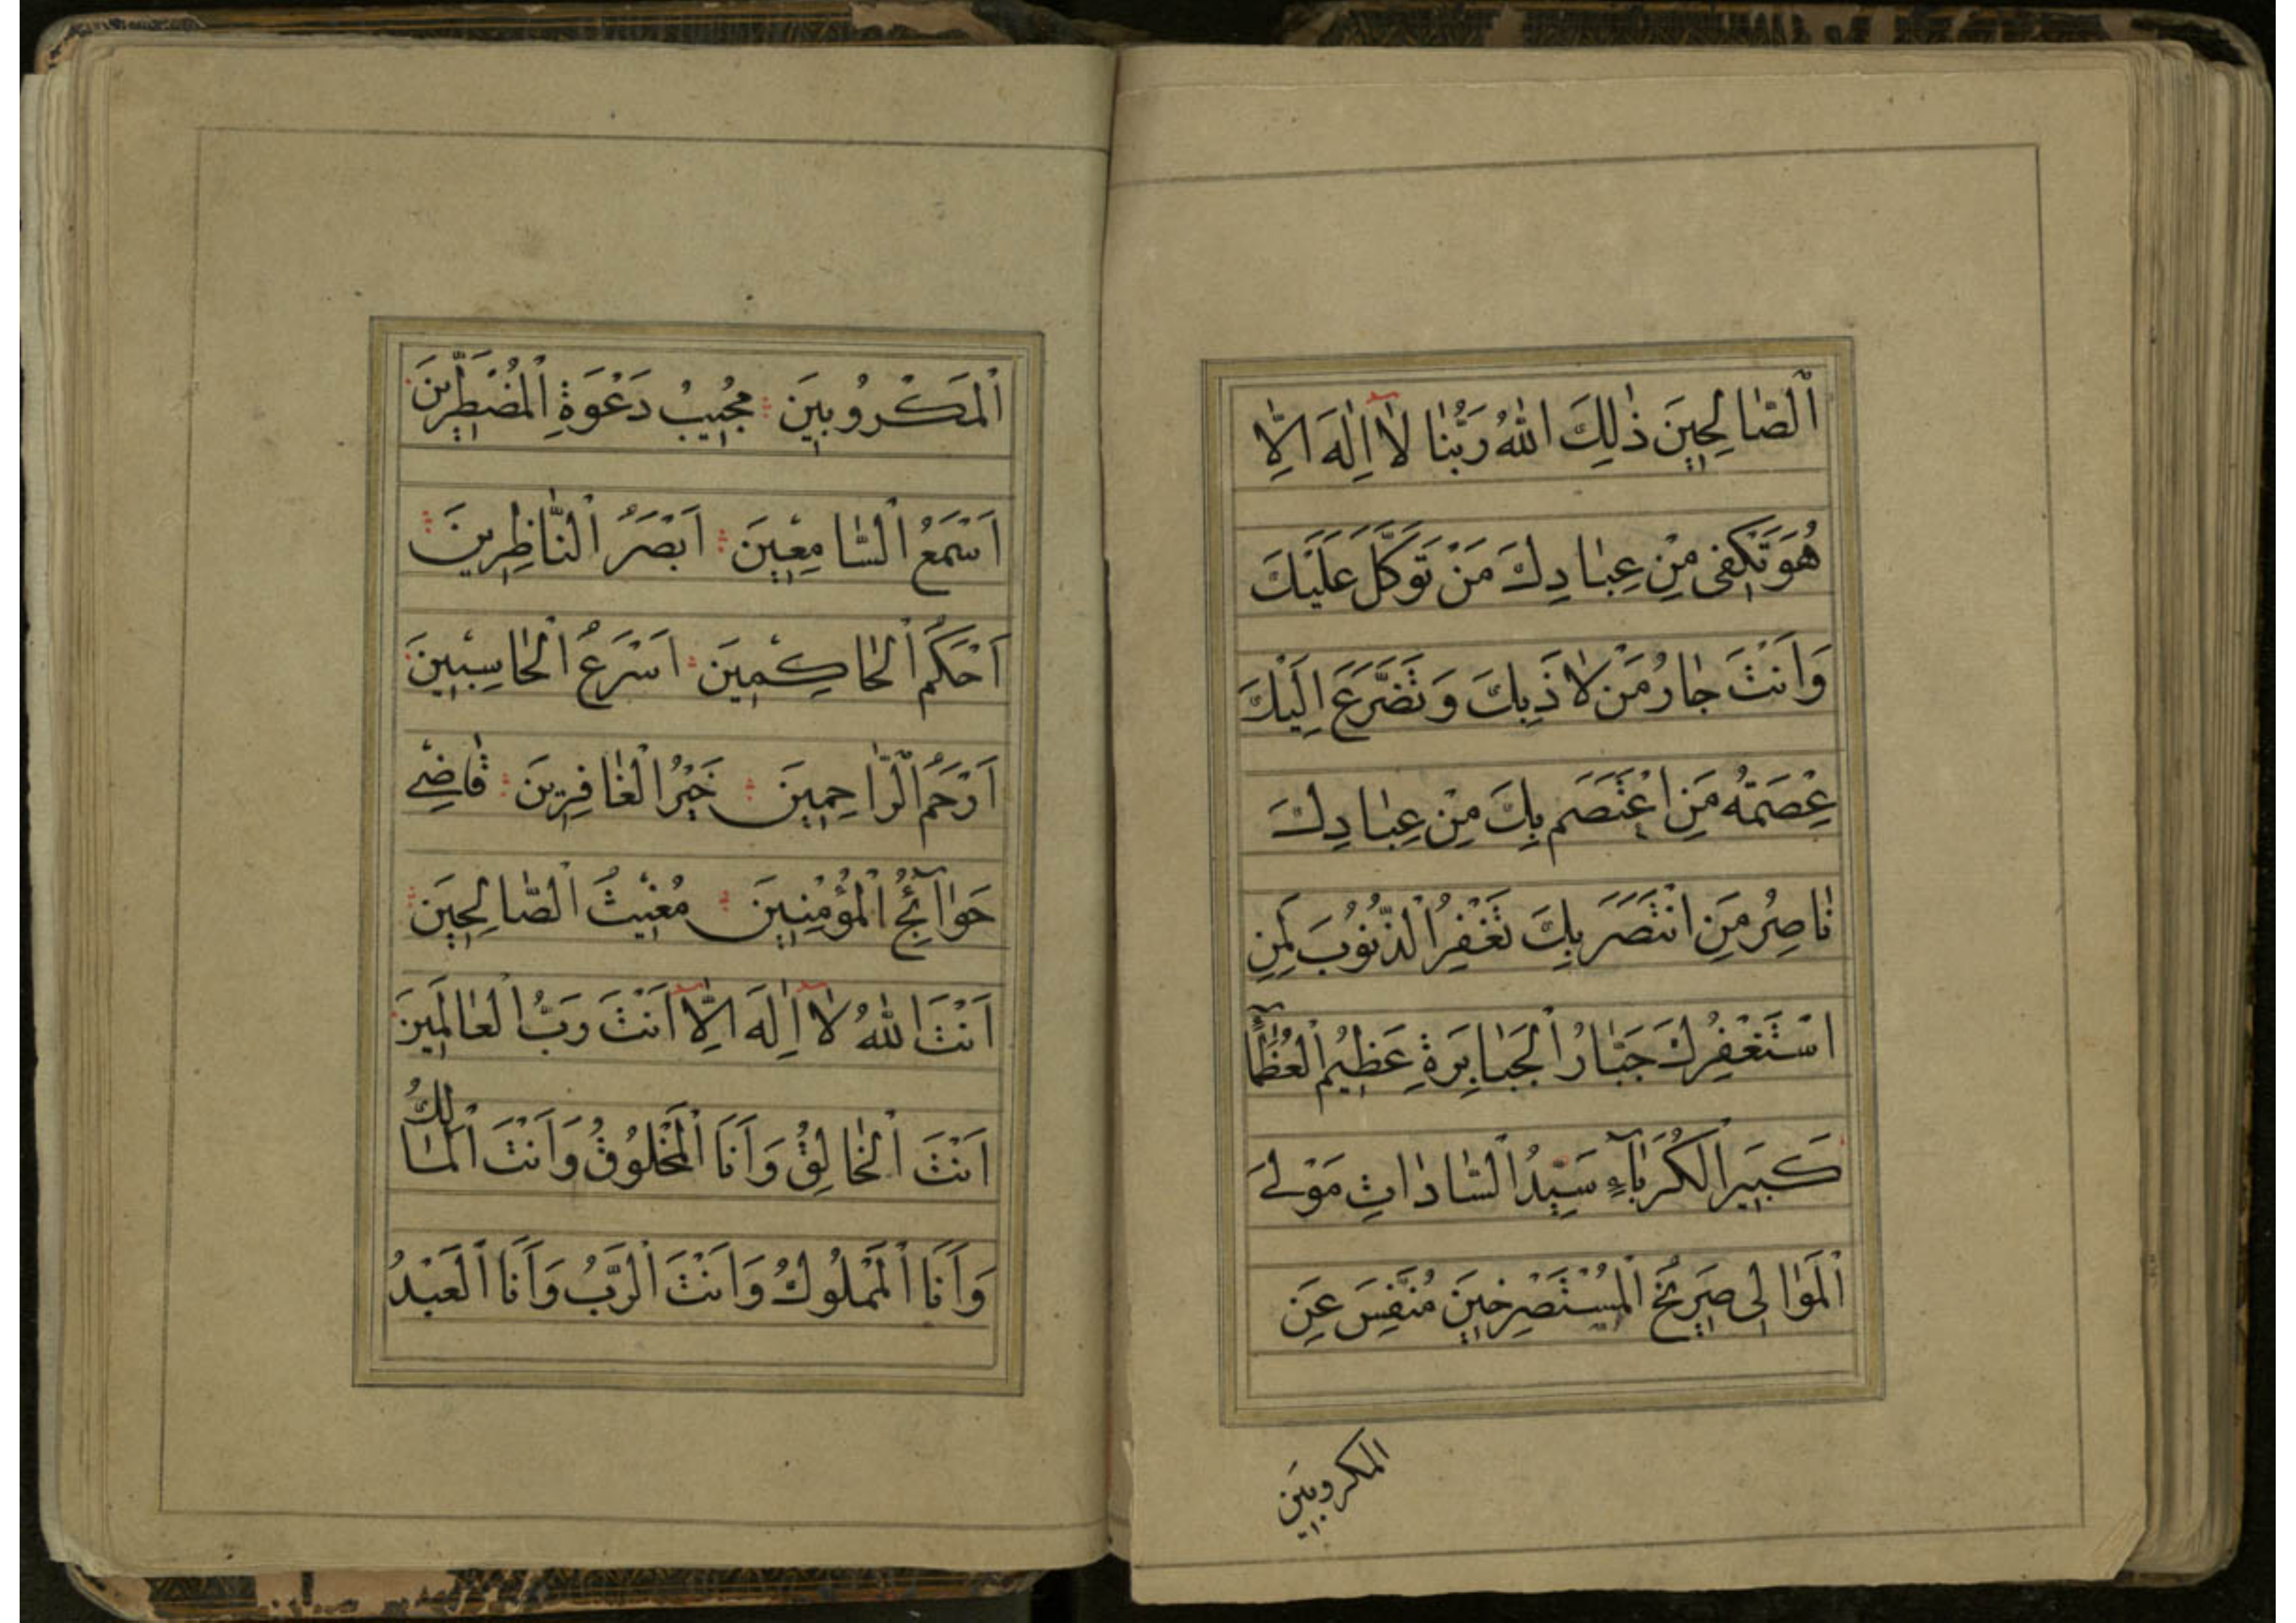 اَلصّٰالِحِينَ ذٰلِكَ اللّٰهُ رَبُّنٰا لٰا اِلٰهَ اِلّٰا
هُوَ تَكْفى مِنْ عِبٰادِكَ مَنْ تَوَكَّلَ عَلَيْكَ
وَاَنْتَ جٰارُ مَنْ لاٰذَ بِكَ وَتَضَرَّعَ اِلَيْكَ
عِصْمَتُهُ مَنِ اعْتَصَمَ بِكَ مِنْ عِبٰادِكَ
نٰاصِرُ مَنِ انْتَصَرَ بِكَ تَغْفِرُ الْذُّنُوُبَ لِمَنِ
اسْتَغْفَرَكَ جَبّٰارُ الْجَبٰابِرَةِ عَظِيمُ الْعُظَمٰآءِ
كَبِيرُ الْكُبَرٰآءِ سَيِّدُ الْسّٰادٰاتِ مَوْلَى
اَلْمَوٰالِى صَرِيخُ الْمُسْتَصْرِخِينَ مُنَفِّسَ عَنِ
المكروبين
اَلْمَكْرُوبِينَ مُجِيبُ دَعْوَةِ الْمُضْطَرِّينَ
اَسْمَعُ الْسّٰامِعِينَ اَبْصَرُ الْنّٰاظِرِينَ
اَحْكَمُ الْحٰاكِمِينَ اَسْرَعُ الْحٰاسِبِينَ
اَرْحَمُ الْرّٰاحِمِينَ خَيْرُ الْغٰافِرِينَ قٰاضِى
حَوٰآئِجُ الْمُؤْمِنِينَ مُغِيثُ الْصّٰالِحِينَ
اَنْتَ اللّٰهُ لاٰ اِلٰهَ اِلّٰا اَنْتَ رَبُّ الْعٰالَمِينَ
اَنْتَ الْخٰالِقُ وَاَنَا الْمَخْلُوقُ وَاَنْتَ الْمٰالِكُ
وَاَنَا الْمَمْلُوكُ وَاَنْتَ الْرَّبُّ وَاَنَا الْعَبْدُ